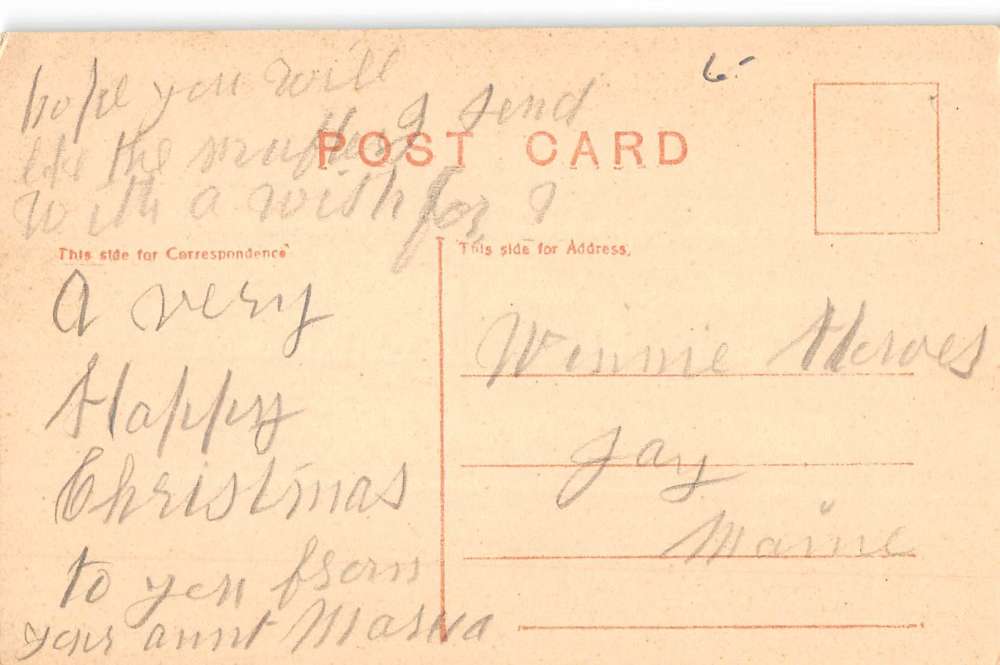 hope you will
like the muffler I send
with a wish for
6-
POST CARD
This side for Correspondence
This side for Address.
A very
Happy
Christmas
to you from
your aunt
Winnie
Jay
Maine